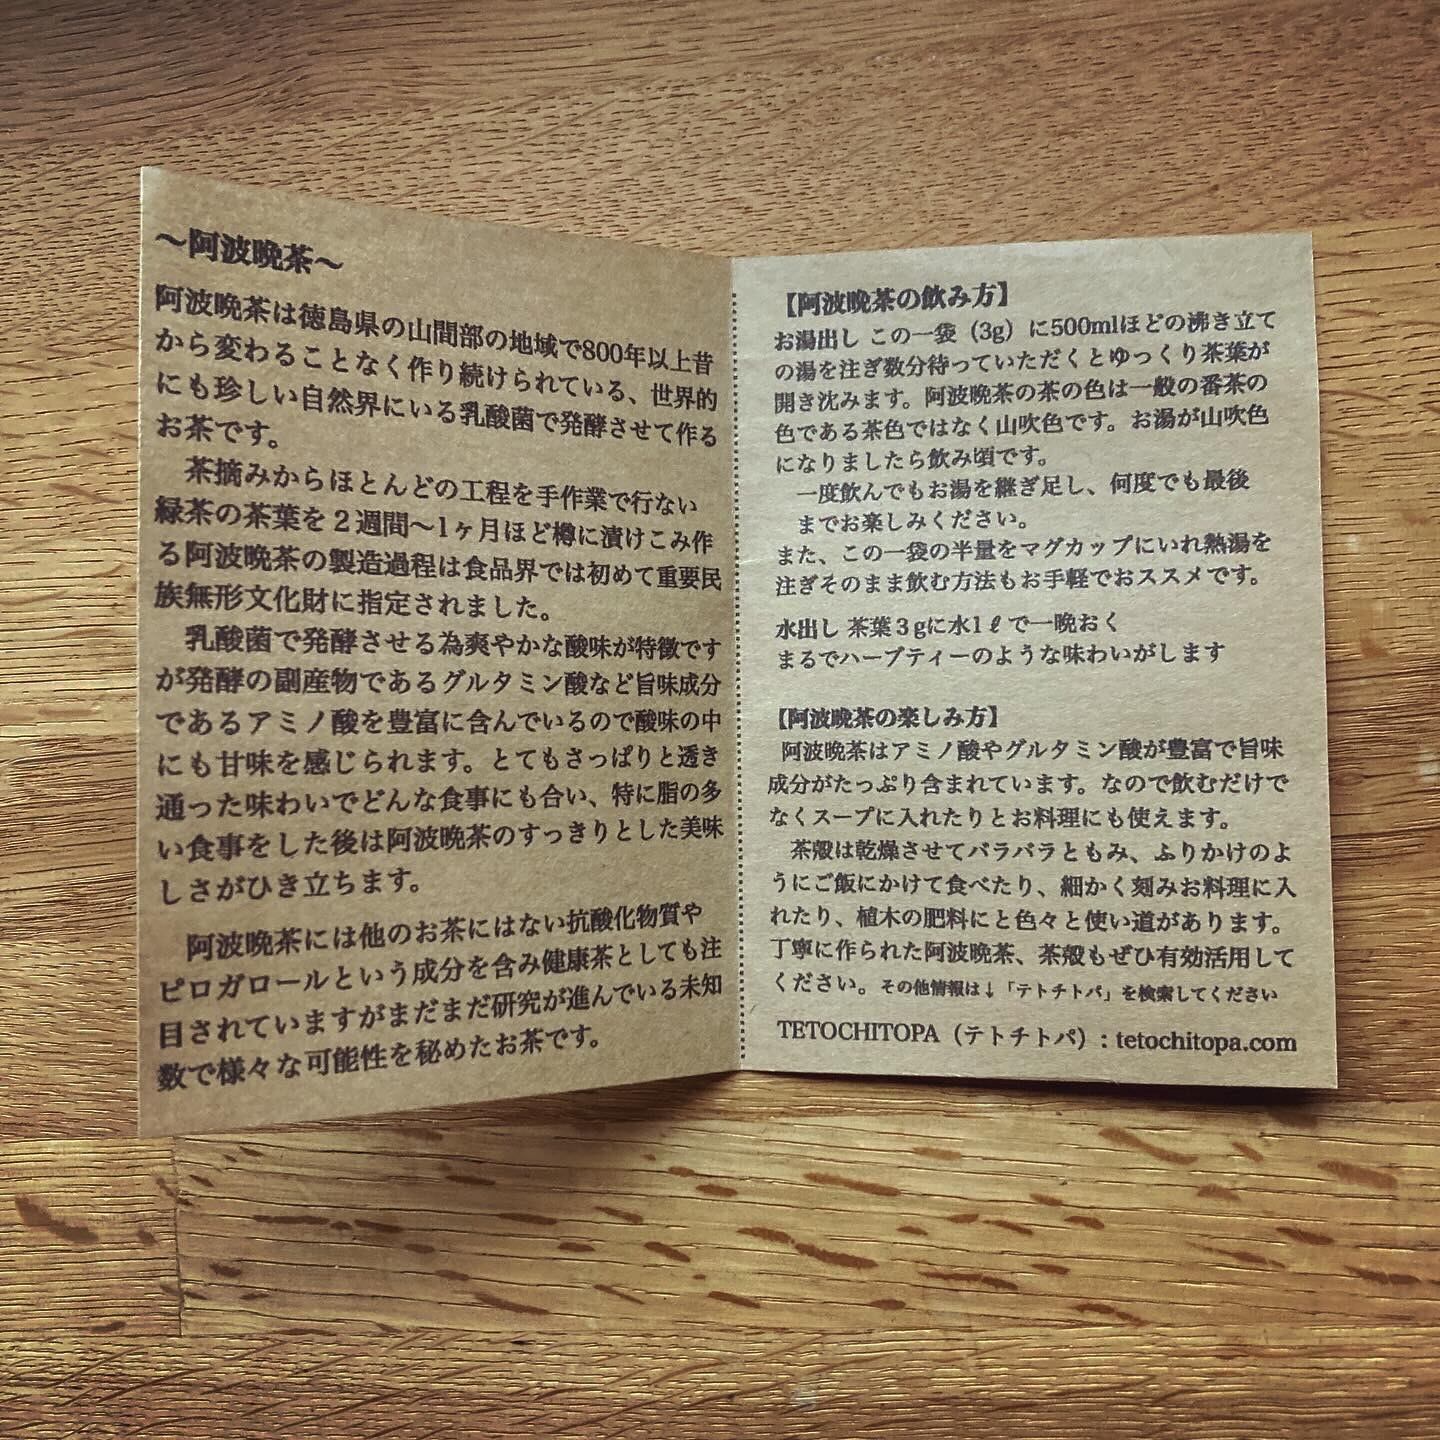 ～阿波晩茶～
阿波晩茶は徳島県の山間部の地域で800年以上昔
から変わることなく作り続けられている、世界的
にも珍しい自然界にいる乳酸菌で発酵させて作る
お茶です。
茶摘みからほとんどの工程を手作業で行ない
緑茶の茶葉を２週間～1ヶ月ほど樽に漬けこみ作
る阿波晩茶の製造過程は食品界では初めて重要民
族無形文化財に指定されました。
乳酸菌で発酵させる為爽やかな酸味が特徴です
が発酵の副産物であるグルタミン酸など旨味成分
であるアミノ酸を豊富に含んでいるので酸味の中
にも甘味を感じられます。とてもさっぱりと透き
通った味わいでどんな食事にも合い、特に脂の多
い食事をした後は阿波晩茶のすっきりとした美味
しさがひき立ちます。
阿波晩茶には他のお茶にはない抗酸化物質や
ピロガロールという成分を含み健康茶としても注
目されていますがまだまだ研究が進んでいる未知
数で様々な可能性を秘めたお茶です。
【阿波晩茶の飲み方】
お湯出し この一袋（3g）に500mlほどの沸き立て
の湯を注ぎ数分待っていただくとゆっくり茶葉が
開き沈みます。阿波晩茶の茶の色は一般の番茶の
色である茶色ではなく山吹色です。お湯が山吹色
になりましたら飲み頃です。
一度飲んでもお湯を継ぎ足し、何度でも最後
までお楽しみください。
また、この一袋の半量をマグカップにいれ熱湯を
注ぎそのまま飲む方法もお手軽でおススメです。
水出し 茶葉３gに水1ℓで一晩おく
まるでハーブティーのような味わいがします
【阿波晩茶の楽しみ方】
阿波晩茶はアミノ酸やグルタミン酸が豊富で旨味
成分がたっぷり含まれています。なので飲むだけで
なくスープに入れたりとお料理にも使えます。
茶殻は乾燥させてバラバラともみ、ふりかけのよ
うにご飯にかけて食べたり、細かく刻みお料理に入
れたり、植木の肥料にと色々と使い道があります。
丁寧に作られた阿波晩茶、茶殻もぜひ有効活用して
ください。その他情報は↓「テトチトパ」を検索してください
TETOCHITOPA（テトチトパ）: tetochitopa.com